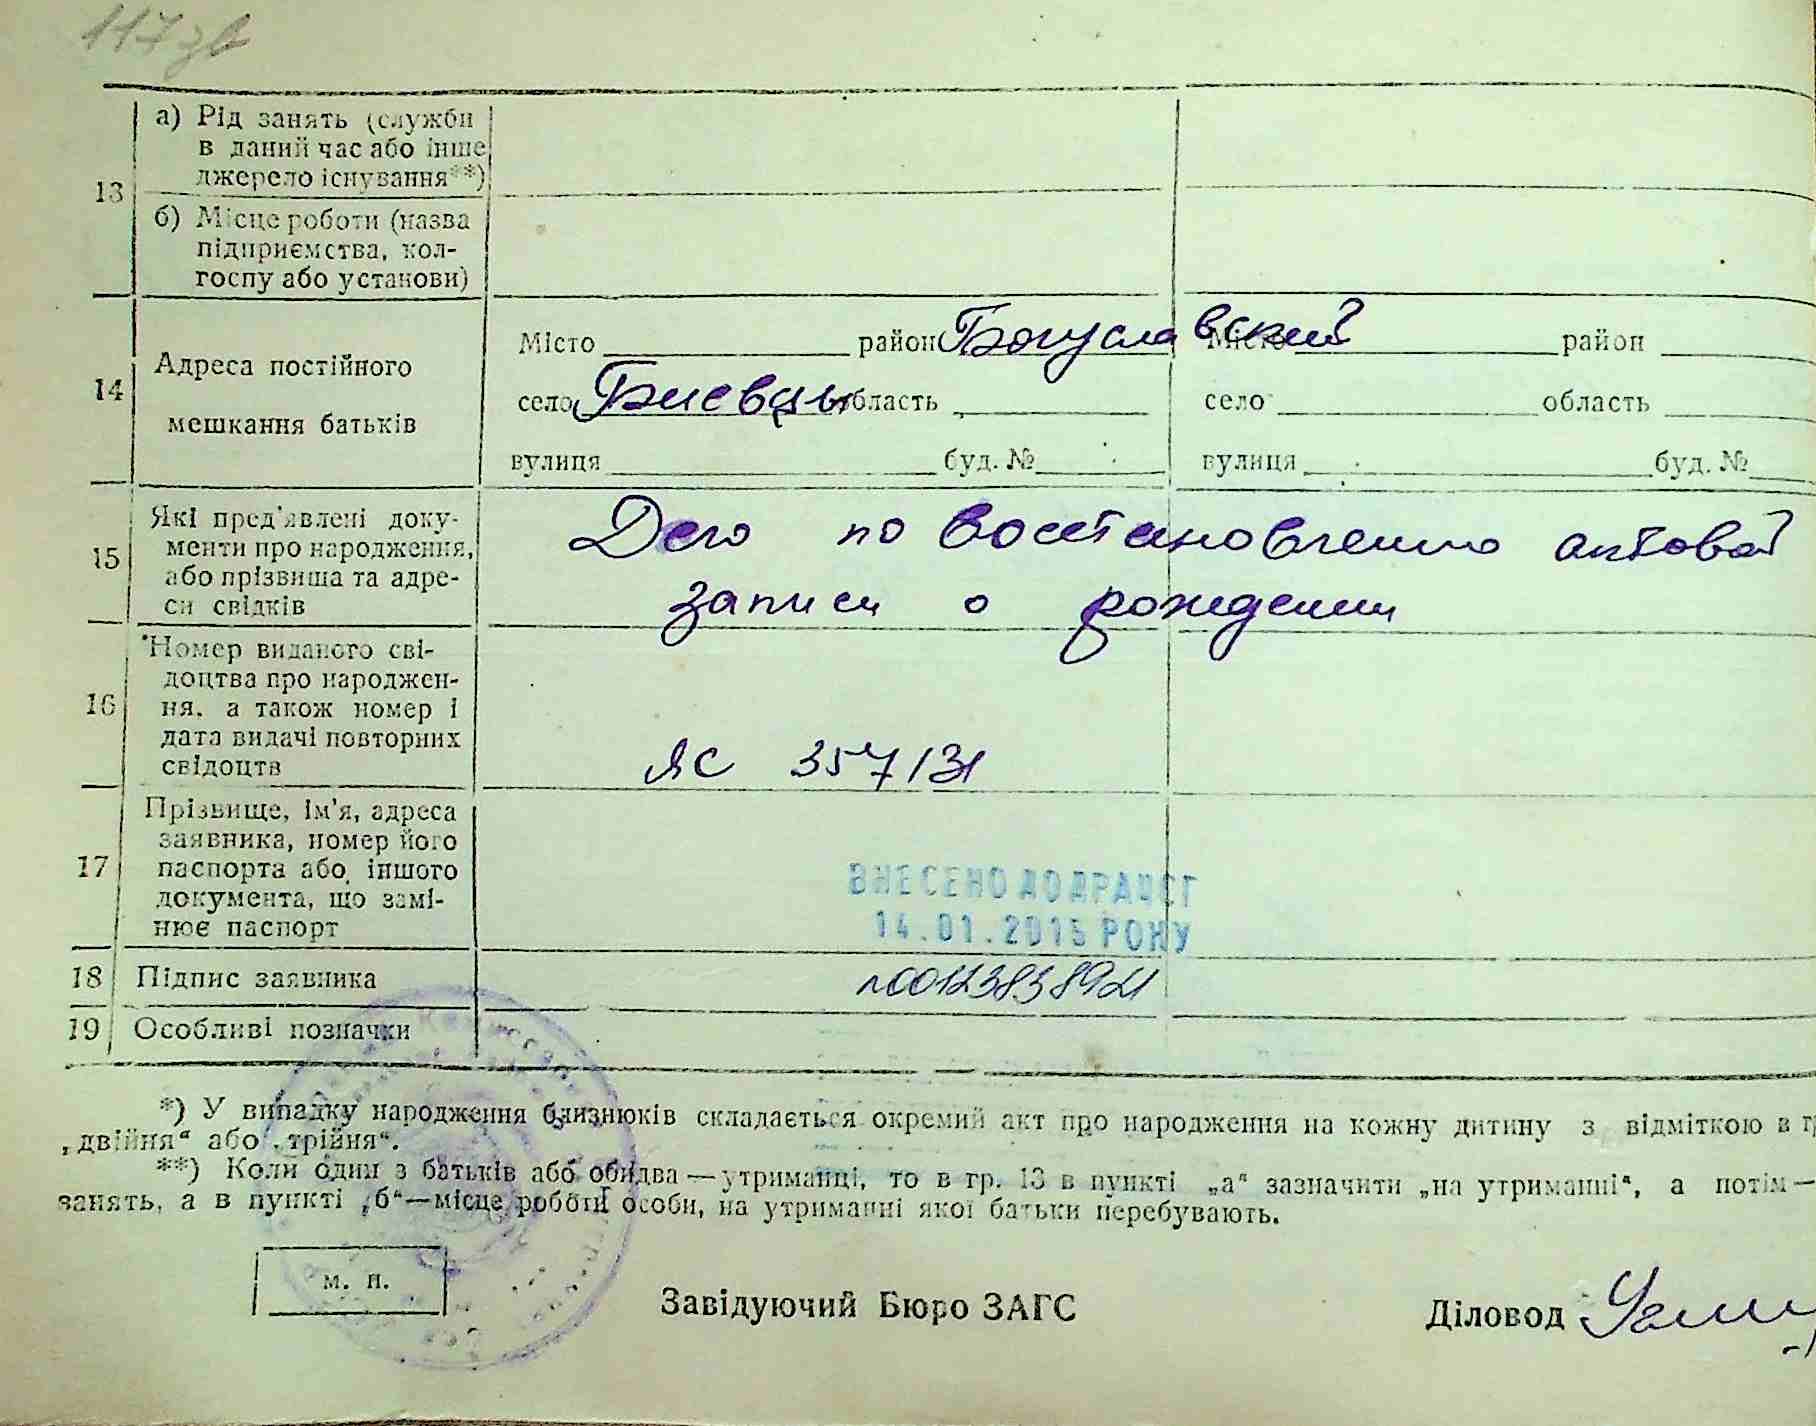 117зв
13
а) Рід занять (служби
в даний час або інше
джерело існування**)
б) Місце роботи (назва
підприємства, кол-
госпу або установи)
14
Адреса постійного
мешкання батьків
Місто район Богуславский Місто район
село Биевцы область село область
вулиця буд. № вулиця буд. №
15
Які пред'явлені доку-
менти про народження,
або прізвища та адре-
си свідків
Дело по восстановлению актовой
записи о рождении
16
Номер виданого сві-
доцтва про народжен-
ня, а також номер і
дата видачі повторних
свідоцтв
ЯС 357131
17
Прізвище, ім'я, адреса
заявника, номер його
паспорта або іншого
документа, що замі-
нює паспорт
ВНЕСЕНО ДО ДРАЦСГ
14.01.2015 РОКУ
18 Підпис заявника
19 Особливі позначки
*) У випадку народження близнюків складається окремий акт про народження на кожну дитину з відміткою в гр
„двійня“ або „трійня“.
**) Коли один з батьків або обидва — утриманці, то в гр. 13 в пункті „а“ зазначити „на утриманні“, а потім —
занять, а в пункті „б“ — місце роботи особи, на утриманні якої батьки перебувають.
м. п.
Завідуючий Бюро ЗАГС
Діловод